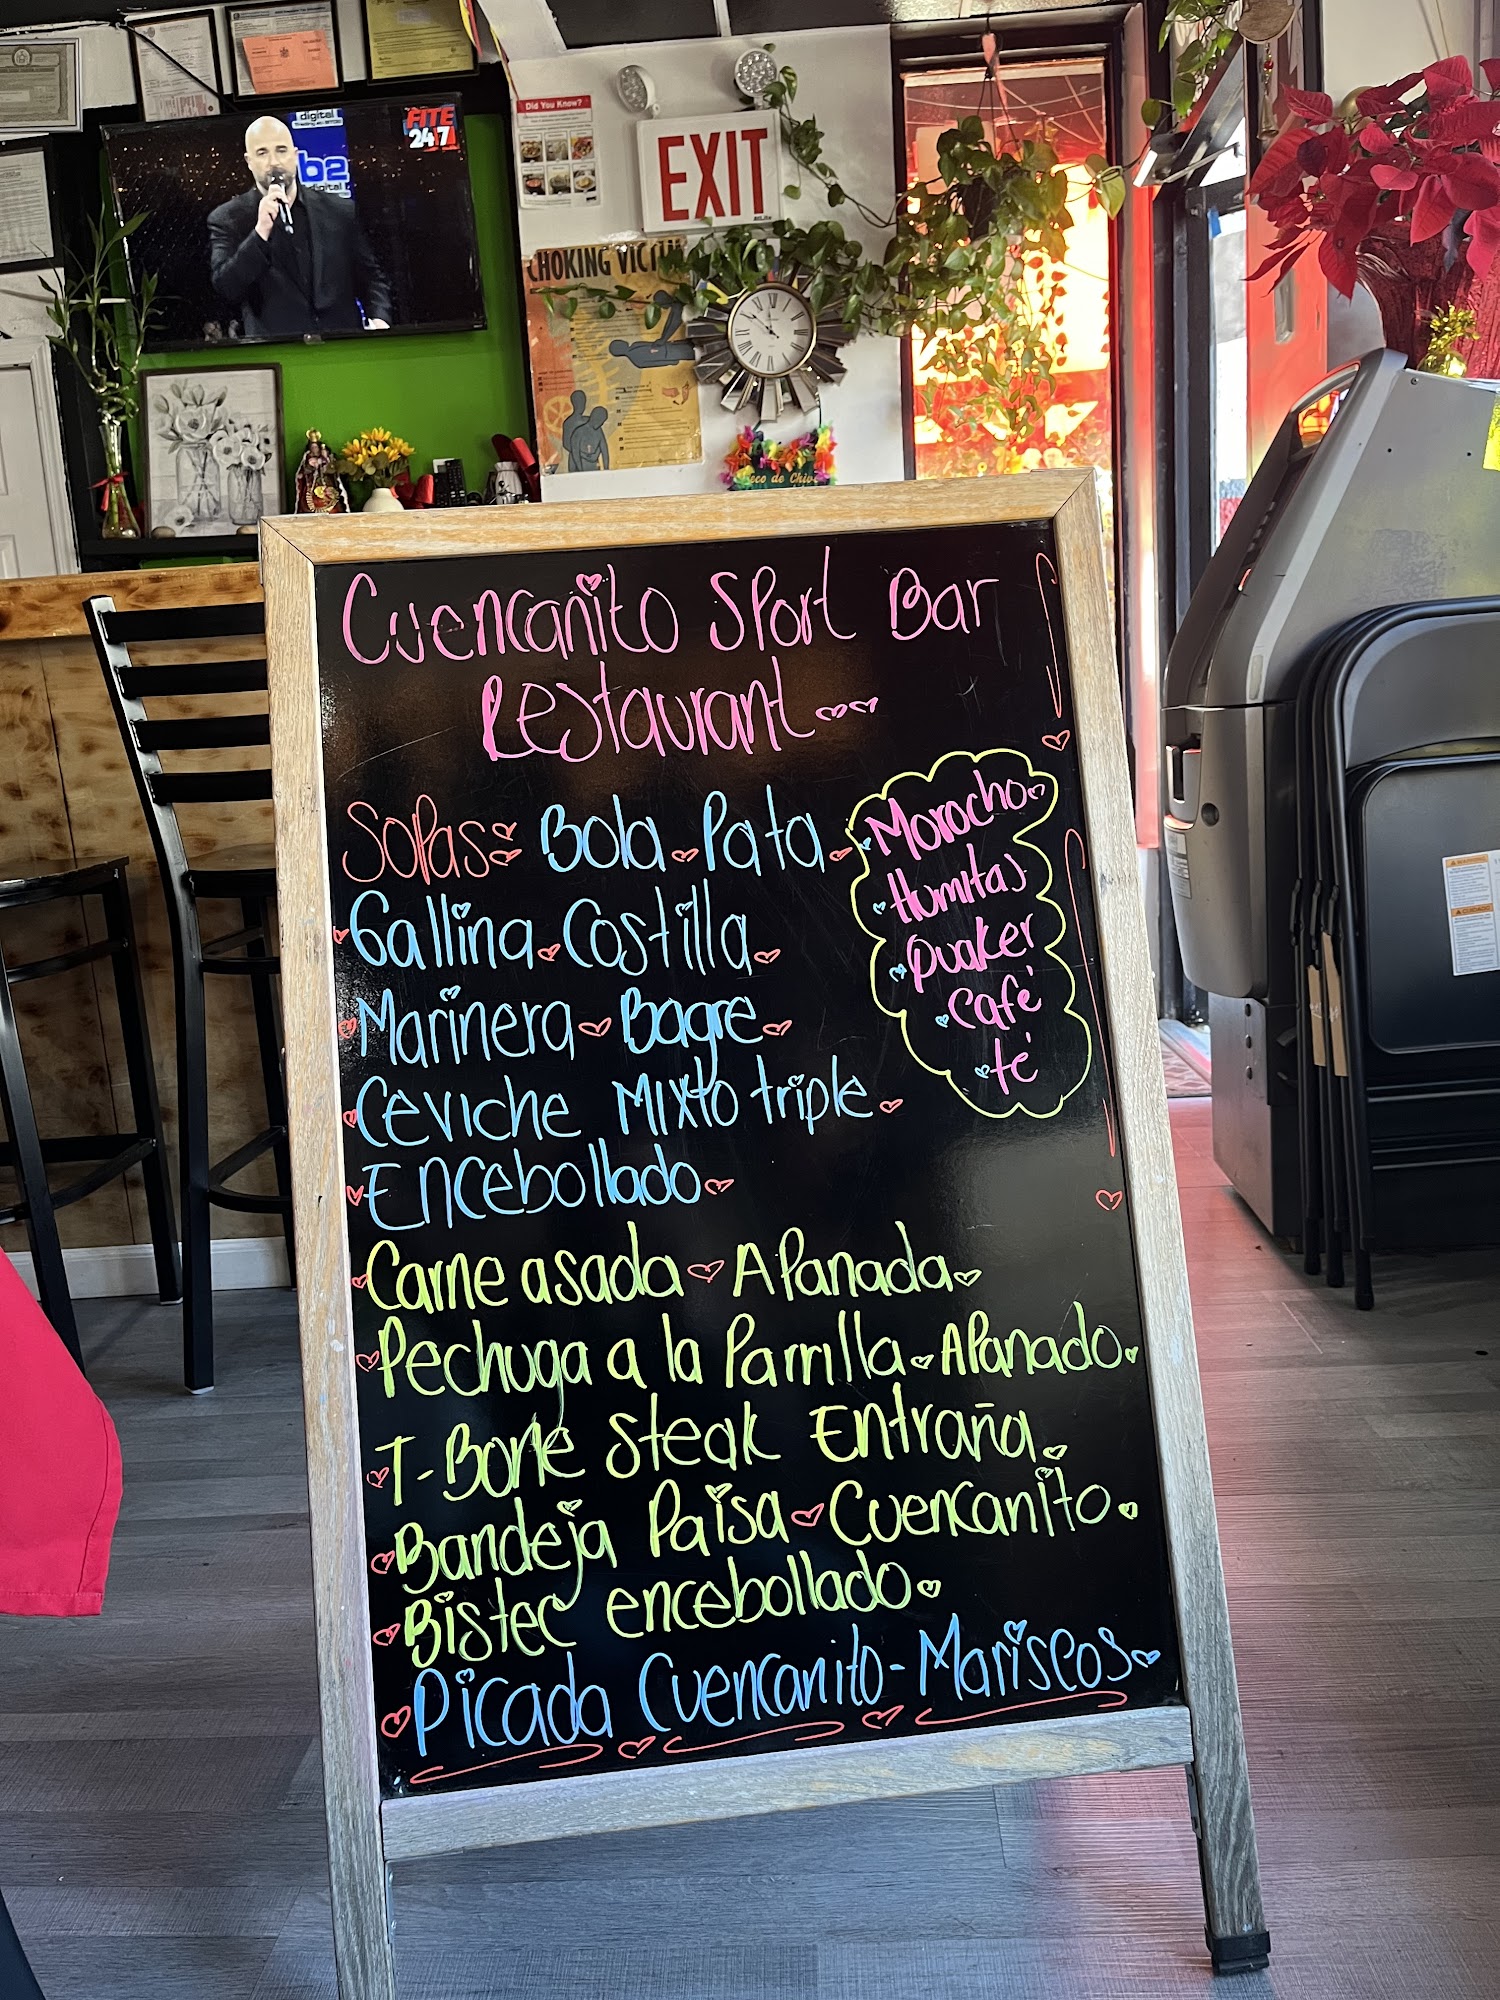 digital
b2
digital
FITE
24 7
Did You Know?
EXIT
CHOKING VICTIM
Cuencanito Sport Bar
Restaurant
Sopas: Bola Pata
Gallina Costilla
Marinera Bagre
Ceviche Mixto triple
Encebollado
Morocho
Humitas
Quaker
Café
té
Carne asada Apanada
Pechuga a la Parrilla Apanado
T-Bone Steak Entraña
Bandeja Paisa Cuencanito
Bistec encebollado
Picada Cuencanito - Mariscos